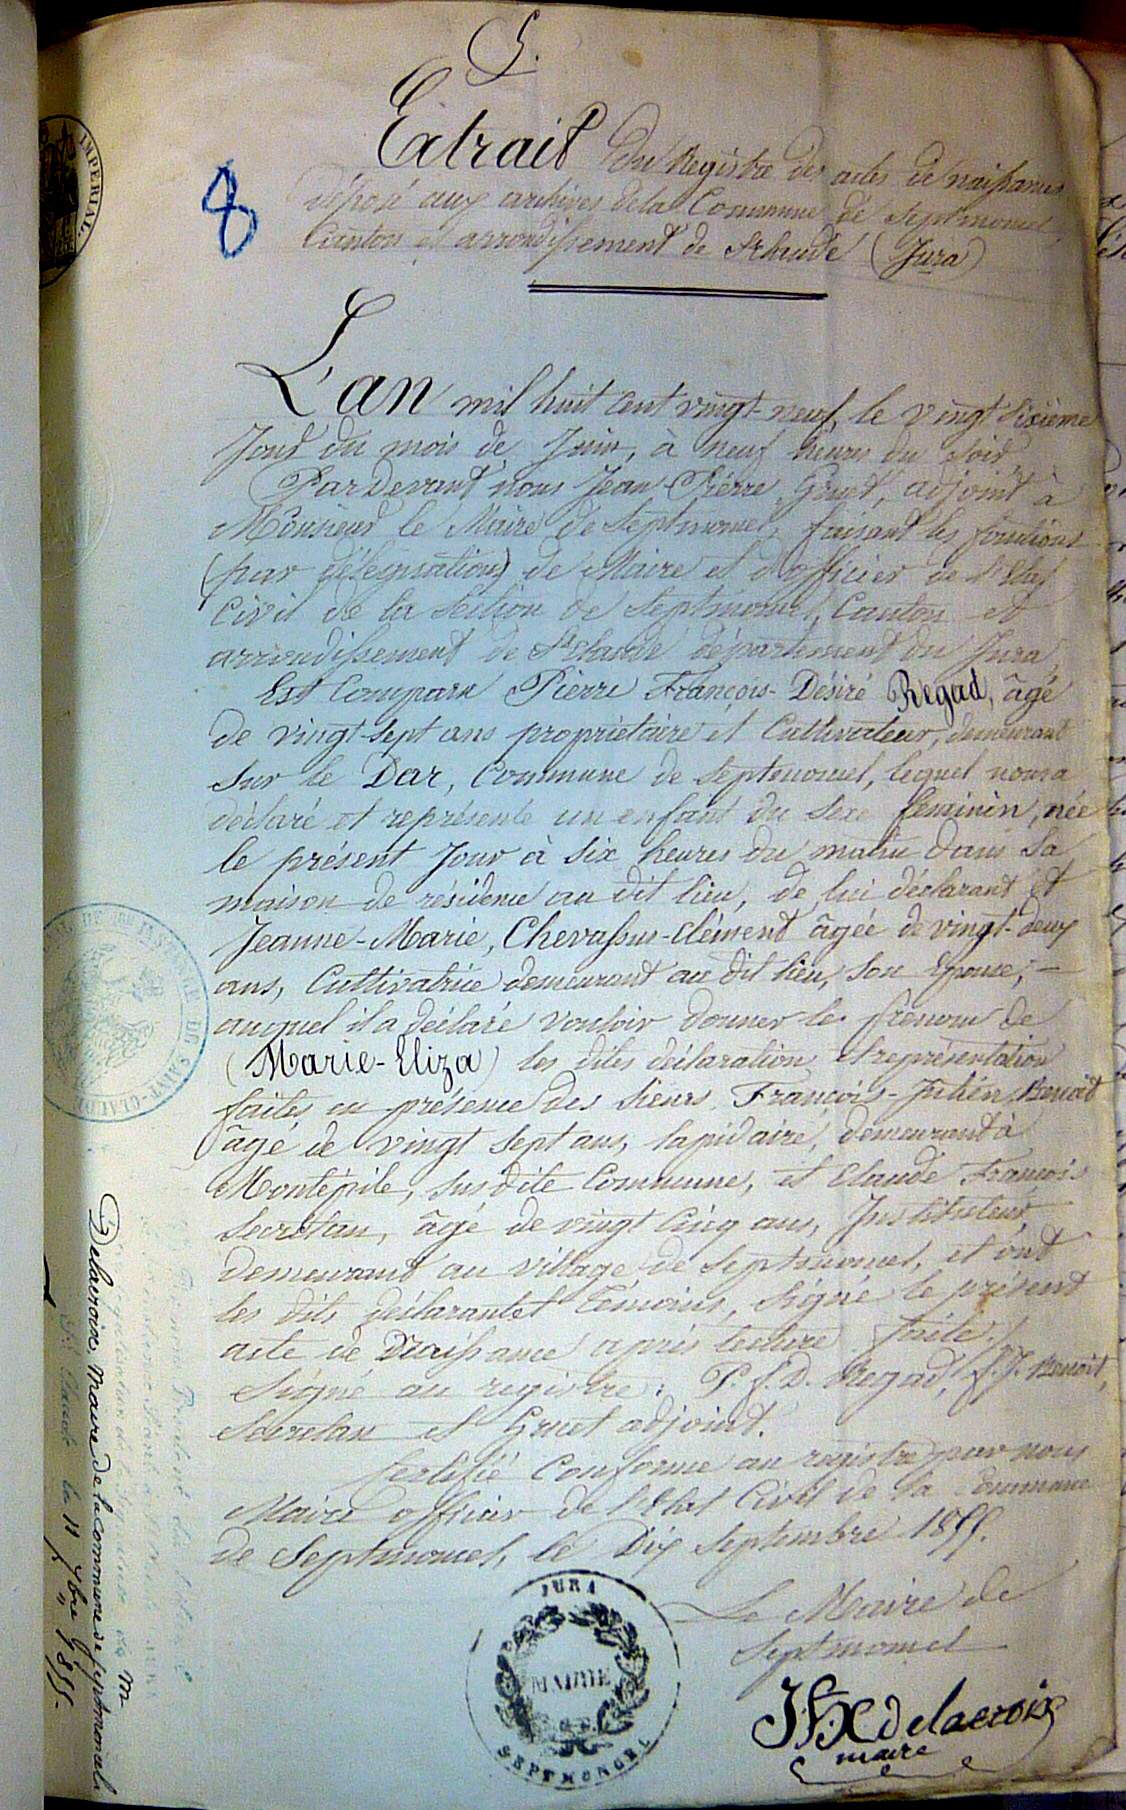 5.
Extrait du Registre des actes de naissances
déposé aux archives de la Commune de Septmoncel,
Canton et arrondissement de St Claude (Jura)
8
IMPERIAL
L'an mil huit cent vingt-neuf, le vingt sixième
Jour du mois de Juin, à neuf heures du soir
Pardevant nous Jean-Pierre Gruet, adjoint à
Monsieur le Maire de Septmoncel, faisant les fonctions
(par délégation) de Maire et d'officier de l'Etat
Civil de la section de Septmoncel, Canton et
arrondissement de St Claude département du Jura,
Est Comparu Pierre François-Désiré Regad, âgé
de vingt-sept ans propriétaire et Cultivateur, demeurant
sur le Dar, Commune de Septmoncel, lequel nous a
déclaré et représenté un enfant du sexe féminin, née
le présent Jour à six heures du matin dans sa
maison de résidence au dit lieu, de lui déclarant et
Jeanne-Marie, Chevassus-Clément âgée de vingt-deux
ans, Cultivatrice demeurant au dit lieu, son Epouse, —
auquel il a déclaré vouloir donner le prénom de
(Marie-Eliza) les dites déclaration et représentation
faites en présence des sieurs François-Julien Benoit
âgé de vingt sept ans, lapidaire, demeurant à
Montépile, susdite Commune, et Claude François
Secrétan, âgé de vingt cinq ans, Instituteur
demeurant au village de Septmoncel, et ont
les dits déclarant et Témoins, Signé le présent
acte de Naissance après lecture faite.
Signé au registre: P. f. D. Regad, f. J. Benoit,
Secretan et Gruet adjoint.
Certifié Conforme au registre par nous
Maire officier de l'Etat Civil de la Commune
de Septmoncel, le Dix Septembre 1855.
Le Maire de
Septmoncel
JFX delacroix
maire
JURA
MAIRIE
SEPTMONCEL
DE 1ère INSTANCE DE SAINT-CLAUDE
M
Delacroix, Maire de la commune de Septmoncel
St Claude le 11 7bre 1855.